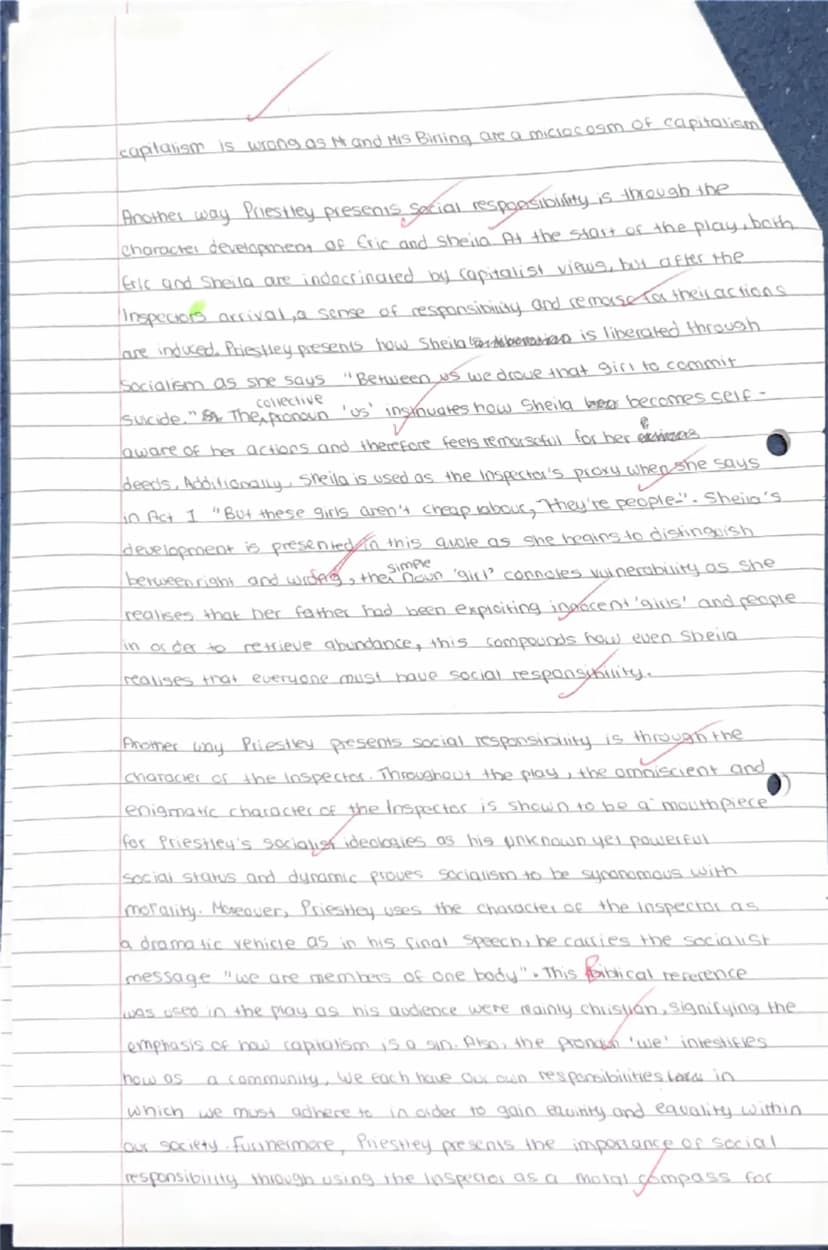 capitalism is wrong as Mr and Mrs Birling are a microcosm of capitalism
Another way Priestley presents social responsibility is through the
character development of Eric and Sheila At the start of the play, both
Eric and Sheila are indocrinated by capitalist views, but after the
Inspectors arrival, a sense of responsibility and remorse for their actions
are induced. Priestley presents how Sheila is liberated through
socialism as she says "Between us we drove that girl to commit
collective
suicide." The pronoun 'us' insinuates how Sheila becomes self-
aware of her actions and therefore feels remorseful for her
deeds. Additionally, Sheila is used as the Inspector's proxy when she says
in Act 1 "But these girls aren't cheap labour, They're people-". Sheila's
development is presented in this quote as she begins to distinguish
simple
between right and wrong, the noun 'girl' connotes vulnerability as she
realises that her father had been exploiting innocent 'girls' and people
in order to retrieve abundance, this compounds how even Sheila
realises that everyone must have social responsibility.
Another way Priestley presents social responsibility is through the
character of the Inspector. Throughout the play, the omniscient and
enigmatic character of the Inspector is shown to be a mouthpiece
for Priestley's socialist ideologies as his unknown yet powerful
social status and dynamic proves socialism to be synonomous with
morality. Moreover, Priestley uses the character of the Inspector as
a dramatic vehicle as in his final speech, he carries the socialist
message "we are members of one body". This Biblical reference
was used in the play as his audience were mainly christian, signifying the
emphasis of how capitalism is a sin. Also, the pronoun 'we' intestifies
how as a community, we each have our own responsibilities in
which we must adhere to in order to gain equitity and equality within
our society. Furthermore, Priestley presents the importance of social
responsibility through using the Inspector as a moral compass for